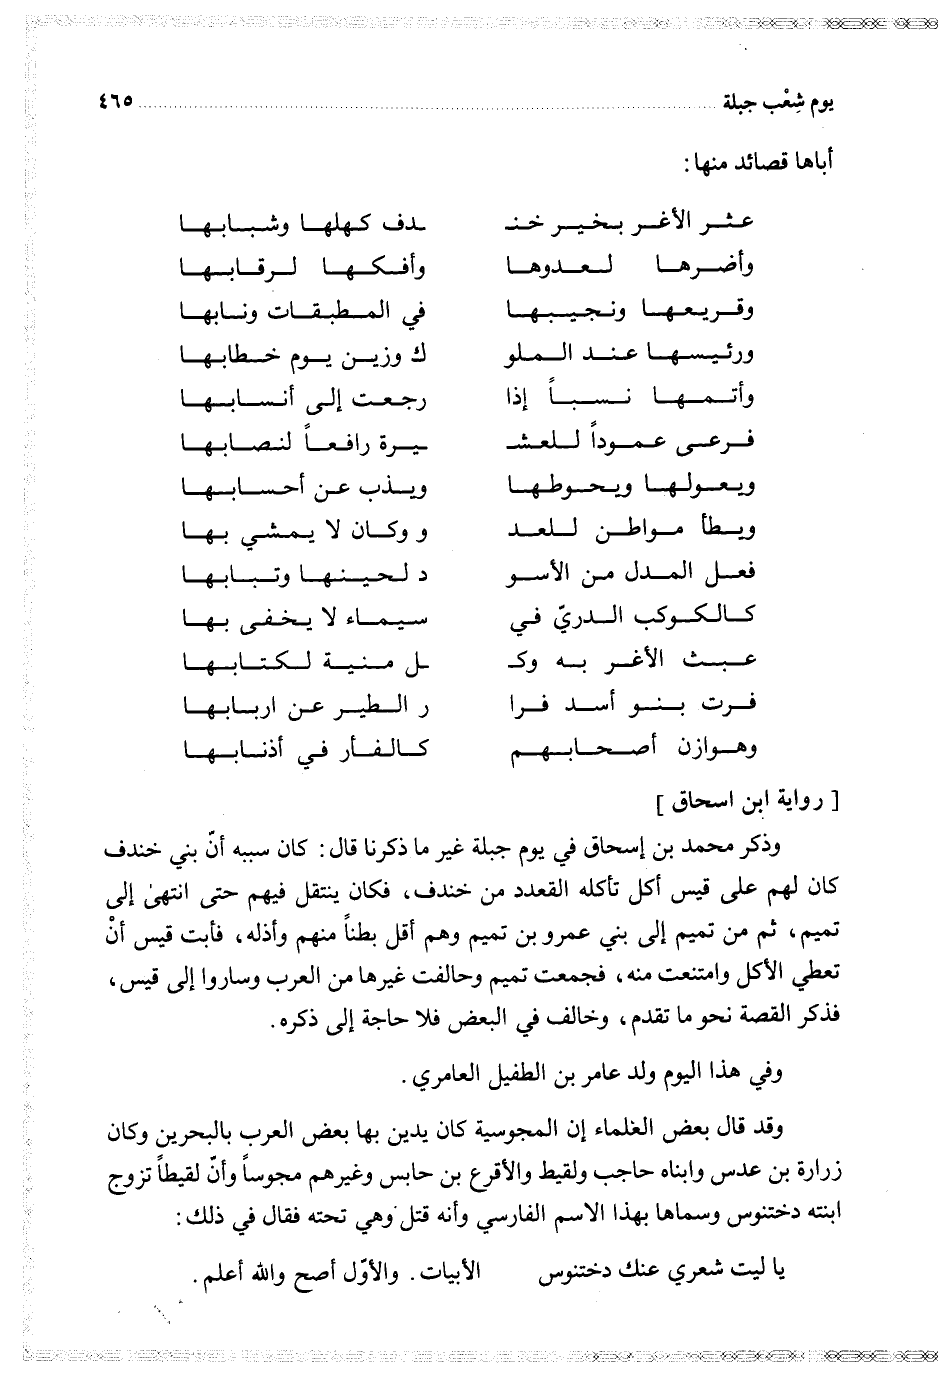 يوم شِعْب جبلة ........ ٤٦٥
أباها قصائد منها:
عثر الأغر بخير خنـ ـدف كهلها وشبابها
وأضرها لعدوها وأفكها لرقابها
وقريعها ونجيبها في المطبقات ونابها
ورئيسها عند الملو ك وزين يوم خطابها
وأتمها نسباً إذا رجعت إلى أنسابها
فرعى عموداً للعشـ ـيرة رافعاً لنصابها
ويعولها ويحوطها ويذب عن أحسابها
ويطأ مواطن للعد و وكان لا يمشي بها
فعل المدل من الأسو د لحينها وتبابها
كالكوكب الدريّ في سيماء لا يخفى بها
عبث الأغر به وكـ ـل منية لكتابها
فرت بنو أسد فرا ر الطير عن اربابها
وهوازن أصحابهم كالفأر في أذنابها
[ رواية ابن اسحاق ]
وذكر محمد بن إسحاق في يوم جبلة غير ما ذكرنا قال: كان سببه أنّ بني خندف
كان لهم على قيس أكل تأكله القعدد من خندف، فكان ينتقل فيهم حتى انتهىٰ إلى
تميم، ثم من تميم إلى بني عمرو بن تميم وهم أقل بطناً منهم وأذله، فأبت قيس أنْ
تعطي الأكل وامتنعت منه، فجمعت تميم وحالفت غيرها من العرب وساروا إلى قيس،
فذكر القصة نحو ما تقدم، وخالف في البعض فلا حاجة إلى ذكره.
وفي هذا اليوم ولد عامر بن الطفيل العامري.
وقد قال بعض الغلماء إن المجوسية كان يدين بها بعض العرب بالبحرين وكان
زرارة بن عدس وابناه حاجب ولقيط والأقرع بن حابس وغيرهم مجوساً وأنّ لقيطاً تزوج
ابنته دختنوس وسماها بهذا الاسم الفارسي وأنه قتل وهي تحته فقال في ذلك:
يا ليت شعري عنك دختنوس الأبيات. والأوّل أصح والله أعلم.